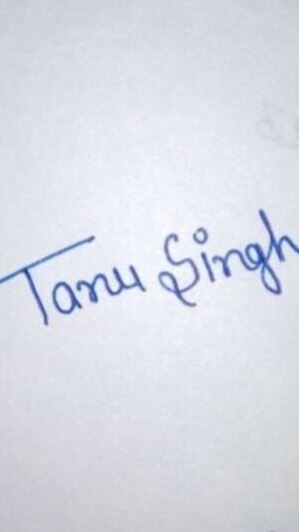 Tanu Singh